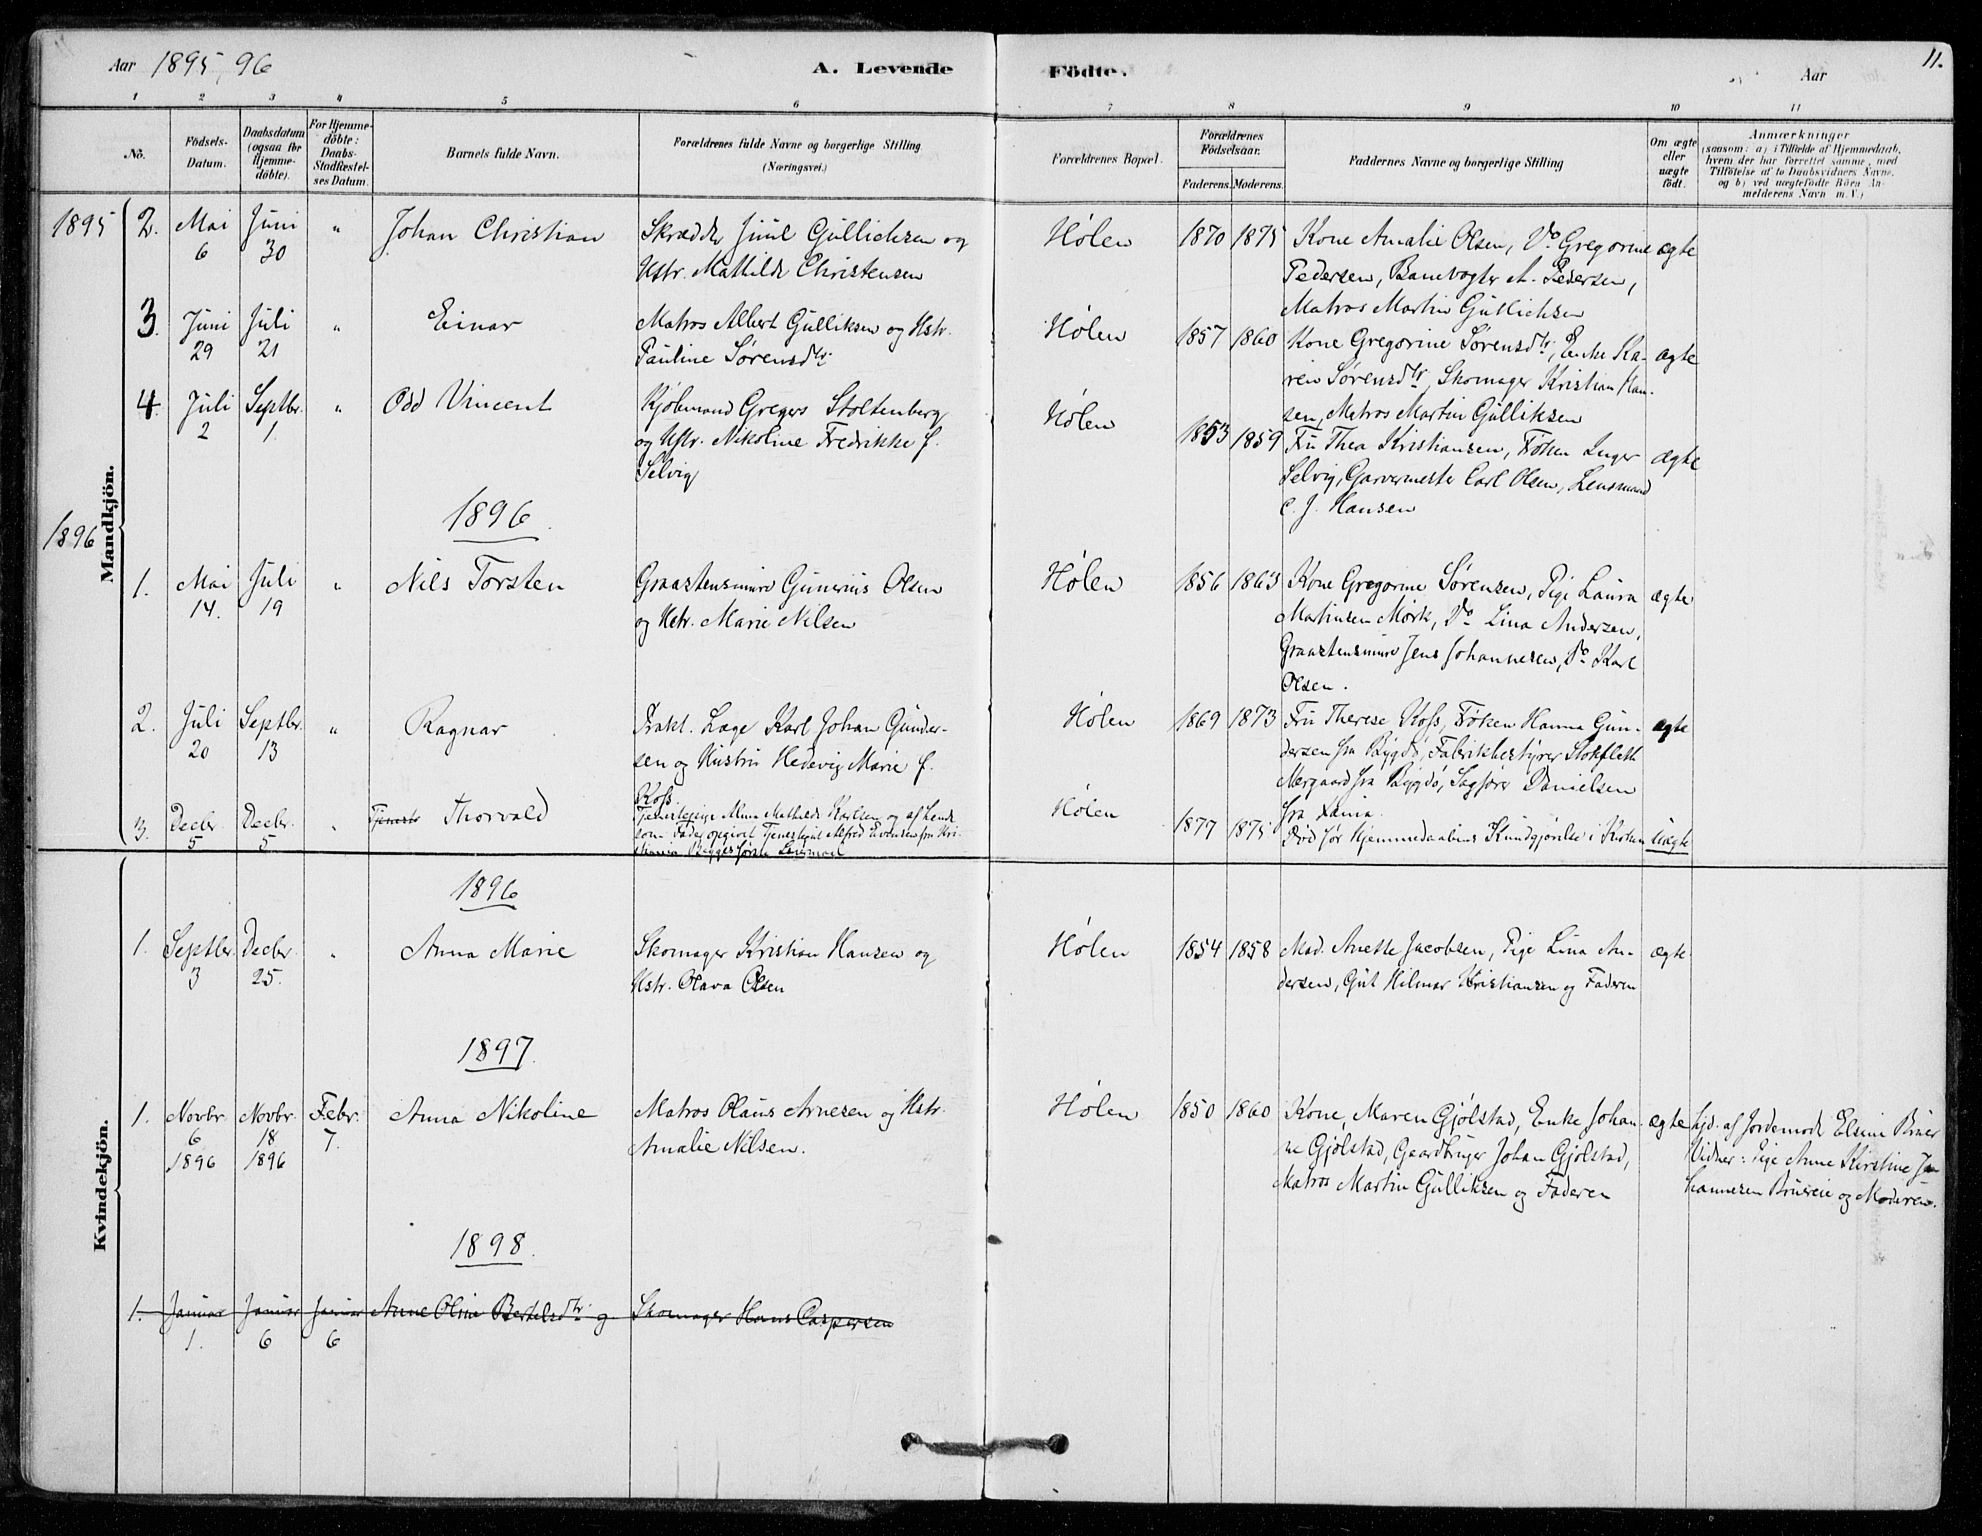 Aar 1895, 96
A. Levende
Födte.
Aar
11.
1 2 3 4 5 6 7 8 9 10 11
No.
Födsels-
Datum.
Daabsdatum
(ogsaa for
Hjemme-
döbte).
For Hjemme-
döbte:
Daabs-
Stadfæstel-
ses Datum.
Barnets fulde Navn.
Forældrenes fulde Navne og borgerlige Stilling
(Næringsvei.)
Forældrenes Bopæl.
Forældrenes
Födselsaar.
Faderens. Moderens.
Faddernes Navne og borgerlige Stilling
Om ægte
eller
uægte
födt.
Anmærkninger
(saasom: a) i Tilfælde af Hjemmedaab,
hvem der har forrettet samme, med
Tilföielse af to Daabsvidners Navne,
og b) ved uægtefödte Börn An-
melderens Navn m. V.)
Mandkjön.
1895
2. Mai 6 Juni 30 " Johan Christian
Skrædder Juul Gullichsen og
Hstr. Mathilde Christensen
Hølen 1870 1875
Kone Amalie Olsen, Do Gregorine
Pedersen, Banevogter A. Pedersen,
Matros Martin Gullichsen
ægte
3. Juni 29 Juli 21 " Einar
Matros Albert Gulliksen og Hstr.
Pauline Sørensdtr.
Hølen 1857 1860
Kone Gregorine Sørensdtr, Enke Ka-
ren Sørensdtr, Skomager Kristian Han-
sen, Matros Martin Gulliksen
ægte
4. Juli 2 Septbr. 1. " Odd Vincent
Kjøbmand Gregers Stoltenberg
og Hstr. Nikoline Fredrikke f.
Selvig
Hølen 1853 1859
Fru Thea Kristiansen, Frøken Inger
Selvig, Garvermester Carl Olsen, Lensmand
C. J. Hansen
ægte
1896
1896.
1. Mai 14. Juli 19 " Nils Torsten
Graastensmurer Gunerius Olsen
og Hstr. Marie Nilsen
Hølen 1856 1863
Kone Gregorine Sørensen, Pige Laura
Martinsen Mørk, Do Lina Andersen,
Graastensmurer Jens Johannesen, Do Karl
Olsen.
ægte
2. Juli 20 Septbr. 13 " Ragnar
Prakt. Læge Karl Johan Gunder-
sen og Hustru Hedevig Marie f.
Ross
Hølen 1869 1873
Fru Therese Ross, Frøken Hanna Gun-
dersen fra Bygdø, Fabrikbestyrer Stokfleth
Nergaard fra Bygdø, Sagfører Danielsen
fra Xania.
ægte
3. Decbr. 5 Decbr. 5 " Thorvald
Tjenestepige Alma Mathilde Karlsen og af hende
som Fader opgivet Tjenestegut Alfred Evensen fra Kri-
stiania Begges første Leiermaal
Hølen 1877 1875
Død før Hjemmedaabens Kundgjørelse i Kirken
uægte
Kvindekjön.
1896
1. Septbr. 3 Decbr. 25. " Anna Marie
Skomager Kristian Hansen og
Hstr. Olava Olsen
Hølen 1854 1858
Mad. Anette Jacobsen, Pige Lina An-
dersen, Gut Hilmar Kristiansen og Faderen
ægte
1897.
1. Novbr. 6 1896 Novbr. 18 1896 Febr. 7. Anna Nikoline
Matros Olaus Arnesen og Hstr.
Amalie Nilsen.
Hølen 1850 1860
Kone, Maren Gjølstad, Enke Johan-
ne Gjølstad, Gaardbruger Johan Gjølstad,
Matros Martin Gulliksen og Faderen
ægte
hjd. af Jordemoder Elsine Bruer
Vidner: Pige Anne Kirstine Jo-
hannesen Brusveie og Moderen.
1898.
1. Januar 1. Januar 6 Januar 6 Anne Oline Bertelsdtr g. Skomager Hans Caspersen